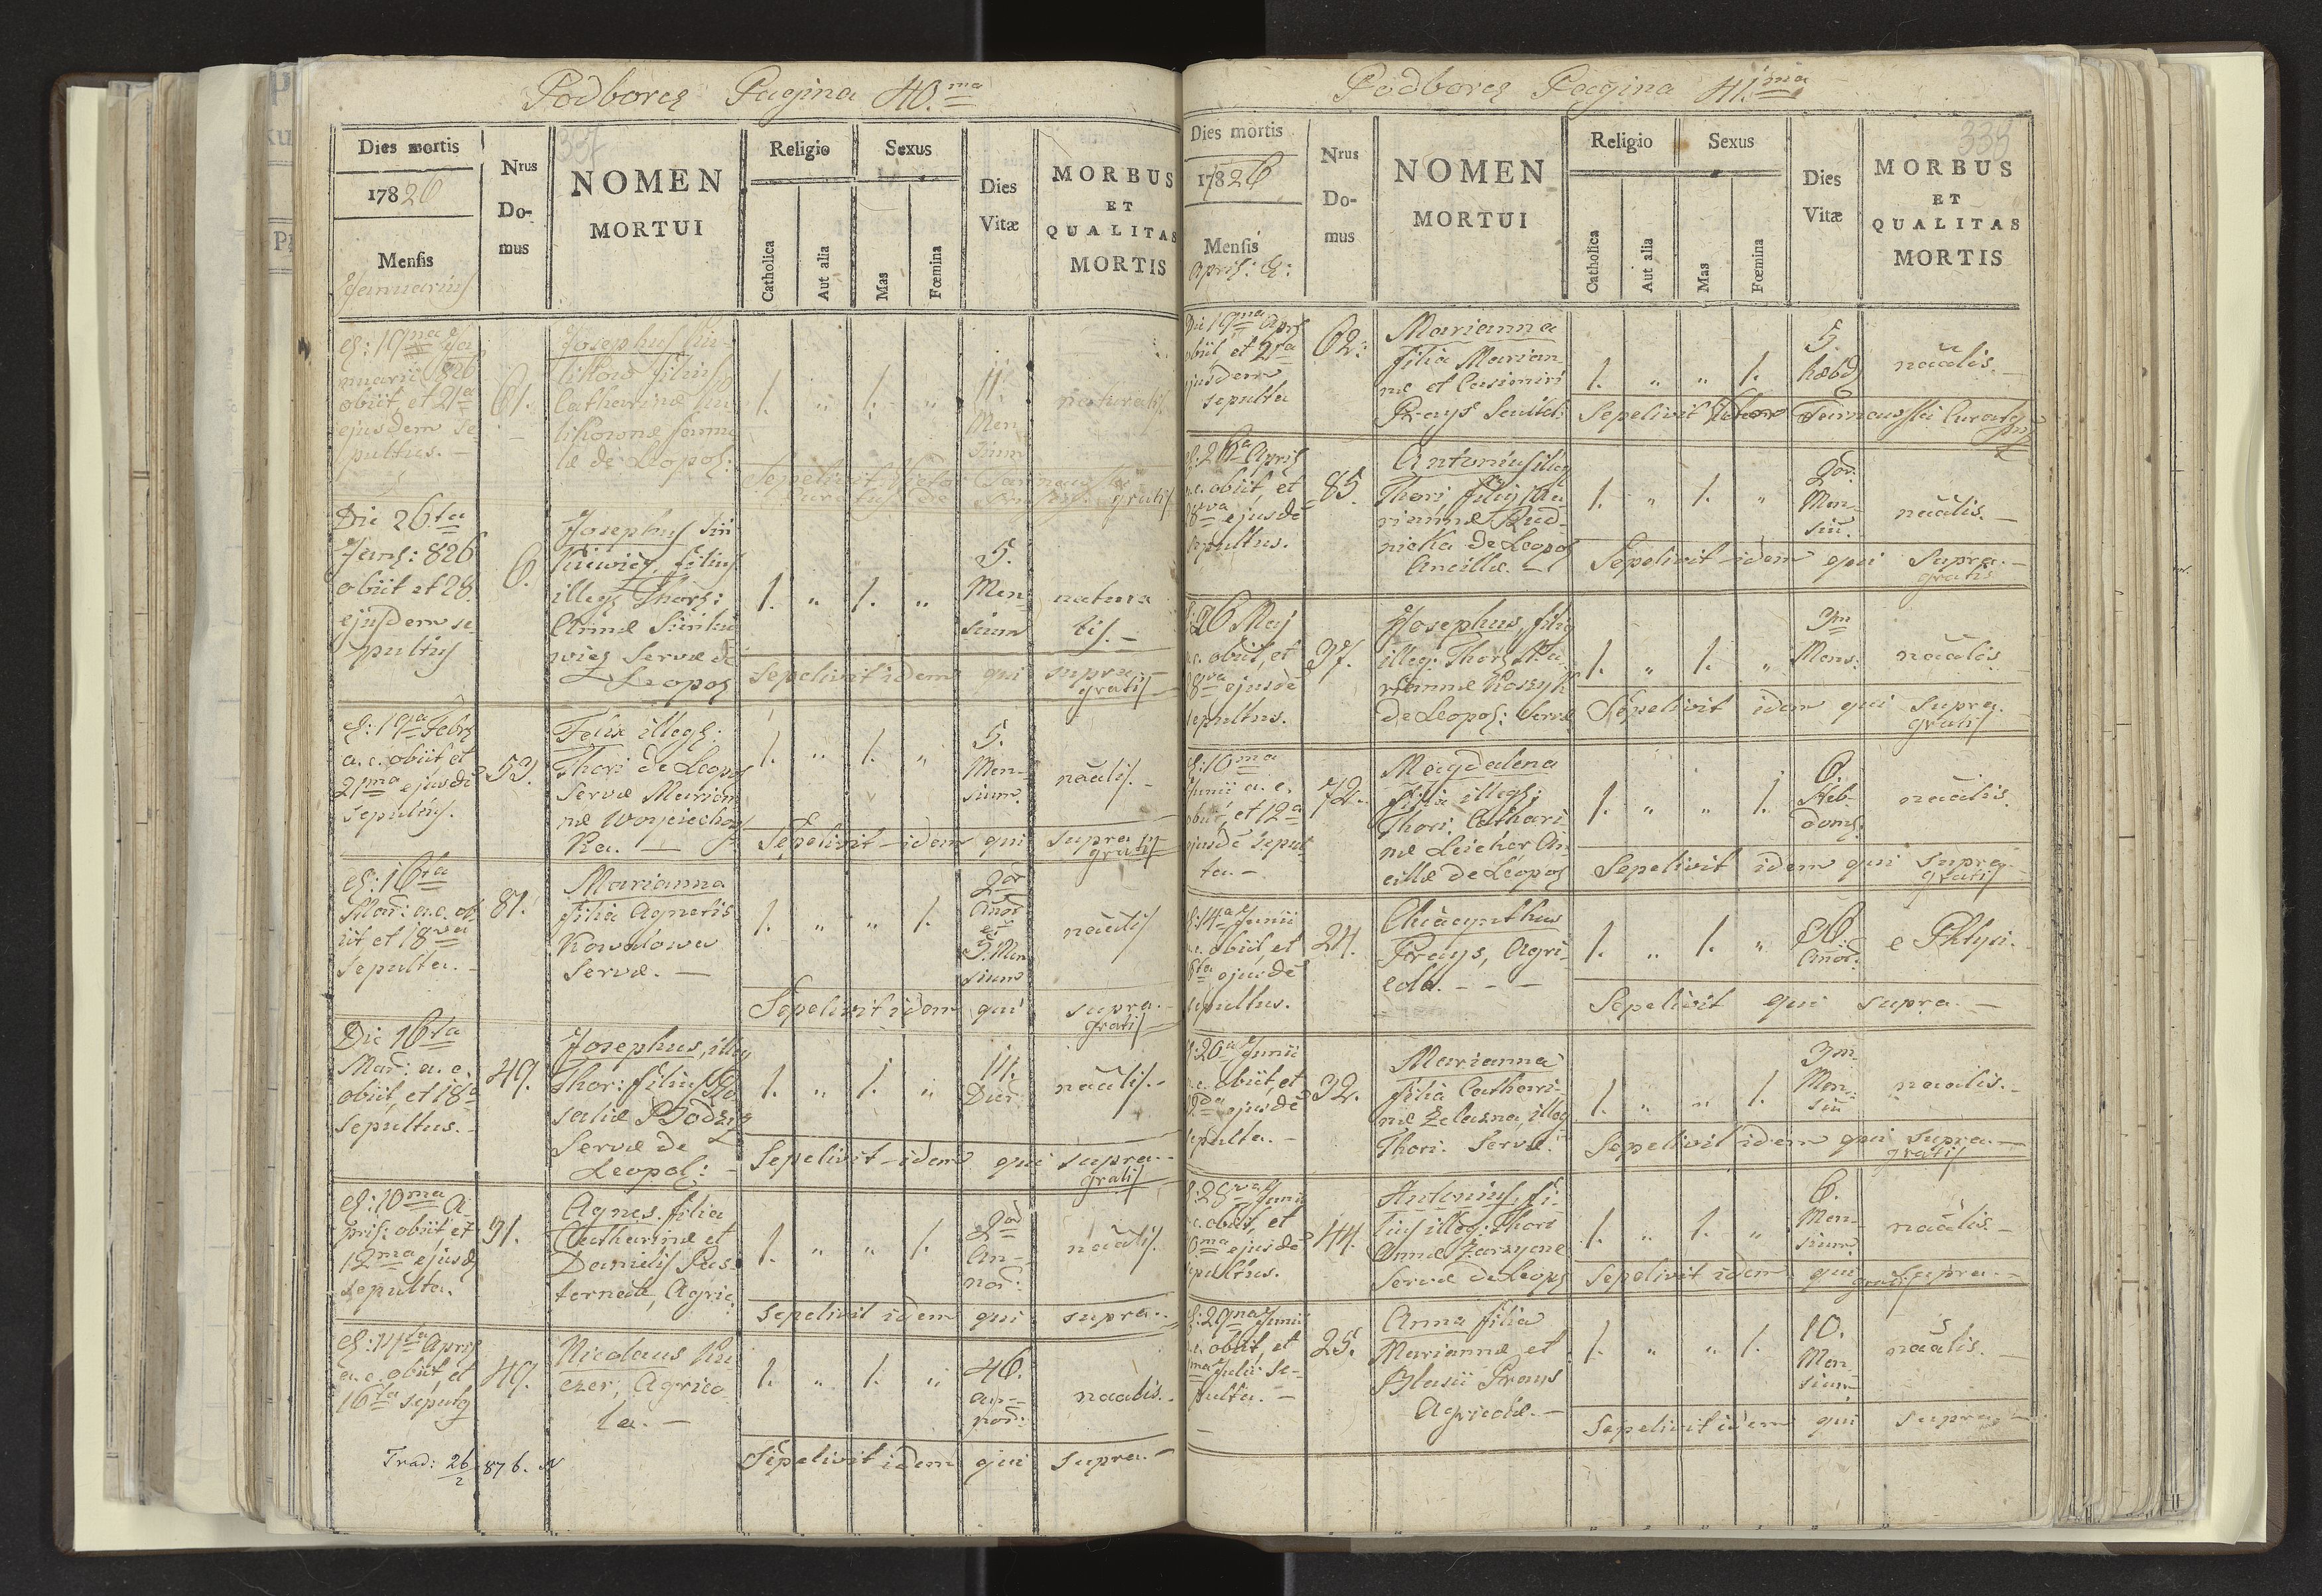 Podborcz Pagina 40.ma
Dies mortis
17826
Mensis
Januarius
Nrus
Do-
mus
NOMEN
MORTUI
Religio
Catholica
Aut alia
Sexus
Mas
Fœmina
Dies
Vitæ
MORBUS
ET
QUALITAS
MORTIS
d: 19na Ja
nuarii 826
obiit, et 21a
ejusdem se-
pultus. –
61.
Josephus
filius
Catharinæ
famu
læ de Leopol:
1. " 1. "
11.
Men
sium
naturalis
Sepelivit Victor Tarnawski
Curatus gratis
Die 26ta
Janu: 826
obiit et 28.
ejusdem se-
pultus
6.
Josephus Sin
kiewicz, filius
illeg: Thori:
Annæ Sinkie
wicz Servæ de
Leopol
1. " 1. "
5.
Men-
sium
natura
lis. –
Sepelivit idem qui supra –
gratis
d: 19a Febr
a. c. obiit et
21ma ejusdē
sepultus.
53.
Felix illeg:
Thori de Leopol
Servæ Marian
næ Woyciechow
ka. –
1. " 1. "
5.
Men-
sium.
nāālis. –
Sepelivit – idem qui supra
gratis
d: 16ta
Mar: a. c. ob-
iit et 18va
sepulta. –
81.
Marianna
filia Agnetis
Kowalowa
Servæ. –
1. " " 1.
2or
Añor
et
5. Men
sium
nāālis
Sepelivit idem qui supra. –
gratis
Die 16ta
Mar: a. c.
obiit, et 18a
sepultus. –
49.
Josephus, illeg
Thor: filius Ro
saliæ
Servæ de
Leopol: –
1. " 1. "
14.
Dier
nāālis. –
Sepelivit – idem qui supra. –
gratis
d: 10ma A-
pril: obiit, et
12ma ejusd
sepulta.
31.
Agnes filia
Catharinæ et
Danielis Pas-
ternak, Agric.
1. " " 1.
2or
An-
nor:
nāālis.
Sepelivit idem qui supra. –
d: 14ta April
a. c. obiit et
16ta sepult
49.
Nicolaus Ku
czer, Agrico
la. –
1. " 1. "
46.
an-
nor:
naalis. –
Sepelivit idem qui supra. –
Trad: 26/2 876. N
Podborcz Pagina 41.ma
333
Dies mortis
17826
Mensis
April: &:
Nrus
Do-
mus
NOMEN
MORTUI
Religio
Catholica
Aut alia
Sexus
Mas
Fœmina
Dies
Vitæ
MORBUS
ET
QUALITAS
MORTIS
Die 19na Apr
obiit, et 21a
ejusdem
sepulta
62.
Marianna
filia Marian
næ et Casimiri
Prays
1. " " 1.
5.
hæbd
nāālis. –
Sepelivit Victor Tarnawski Curatus
d: 26a April
a. c. obiit, et
28va ejusdē
sepultus.
85.
Antonius illeg
Thori filius Ma
riannæ Rud-
nicka de Leopol
Ancillæ. –
1. " 1. "
2or
Men-
siū.
nāālis. –
Sepelivit – idem qui Supra. –
gratis
26 Maj
a. c. obiit, et
28va ejusdē
sepultus.
37.
Josephus, filius
illeg: Thori Ma
riannæ Koszyk
de Leopol: Servæ
1. " 1. "
3um
Mens:
nāālis
Sepelivit idem qui Supra.
gratis
d: 10ma
Junii a. c.
obiit, et 12a
ejusdē sepul-
ta. –
72.
Magdalena
filia illeg:
Thori. Cathari
næ Leicher An-
cillæ de Leopol
1. " " 1.
6.
Heb-
doms:
nāālis.
Sepelivit idem qui Supra.
gratis
d: 14a Junii
a. c. obiit, et
ejusdē
sepultus.
24.
Chiacynthus
Prays, Agri-
cola. – – –
1. " 1. "
Añor:
e Phtysi. –
Sepelivit qui supra. –
d: 20a Junii
a. c. obiit, et
ejusdē
sepulta. –
32.
Marianna
filia Cathari-
næ Zelazna, illeg
Thori. Servæ.
1. " " 1.
3um
Men-
siū
naalis. –
Sepelivit idem qui supra –
gratis
d: 28va Junii
a. c. obiit, et
ejusdē
sepultus.
44.
Antonius, fi-
lius illeg: Thori
Annæ
Servæ de Leopol
1. " 1. "
6.
Men-
sium.
nāālis –
Sepelivit idem qui supra –
gratis
d: 29na Junii
a. c. obiit, et
Julii se-
pulta. –
25.
Anna filia
Mariannæ et
Blasii Prays
Agricolæ. –
1. " " 1.
10.
Men-
sium
nāālis. –
Sepelivit idem qui supra –